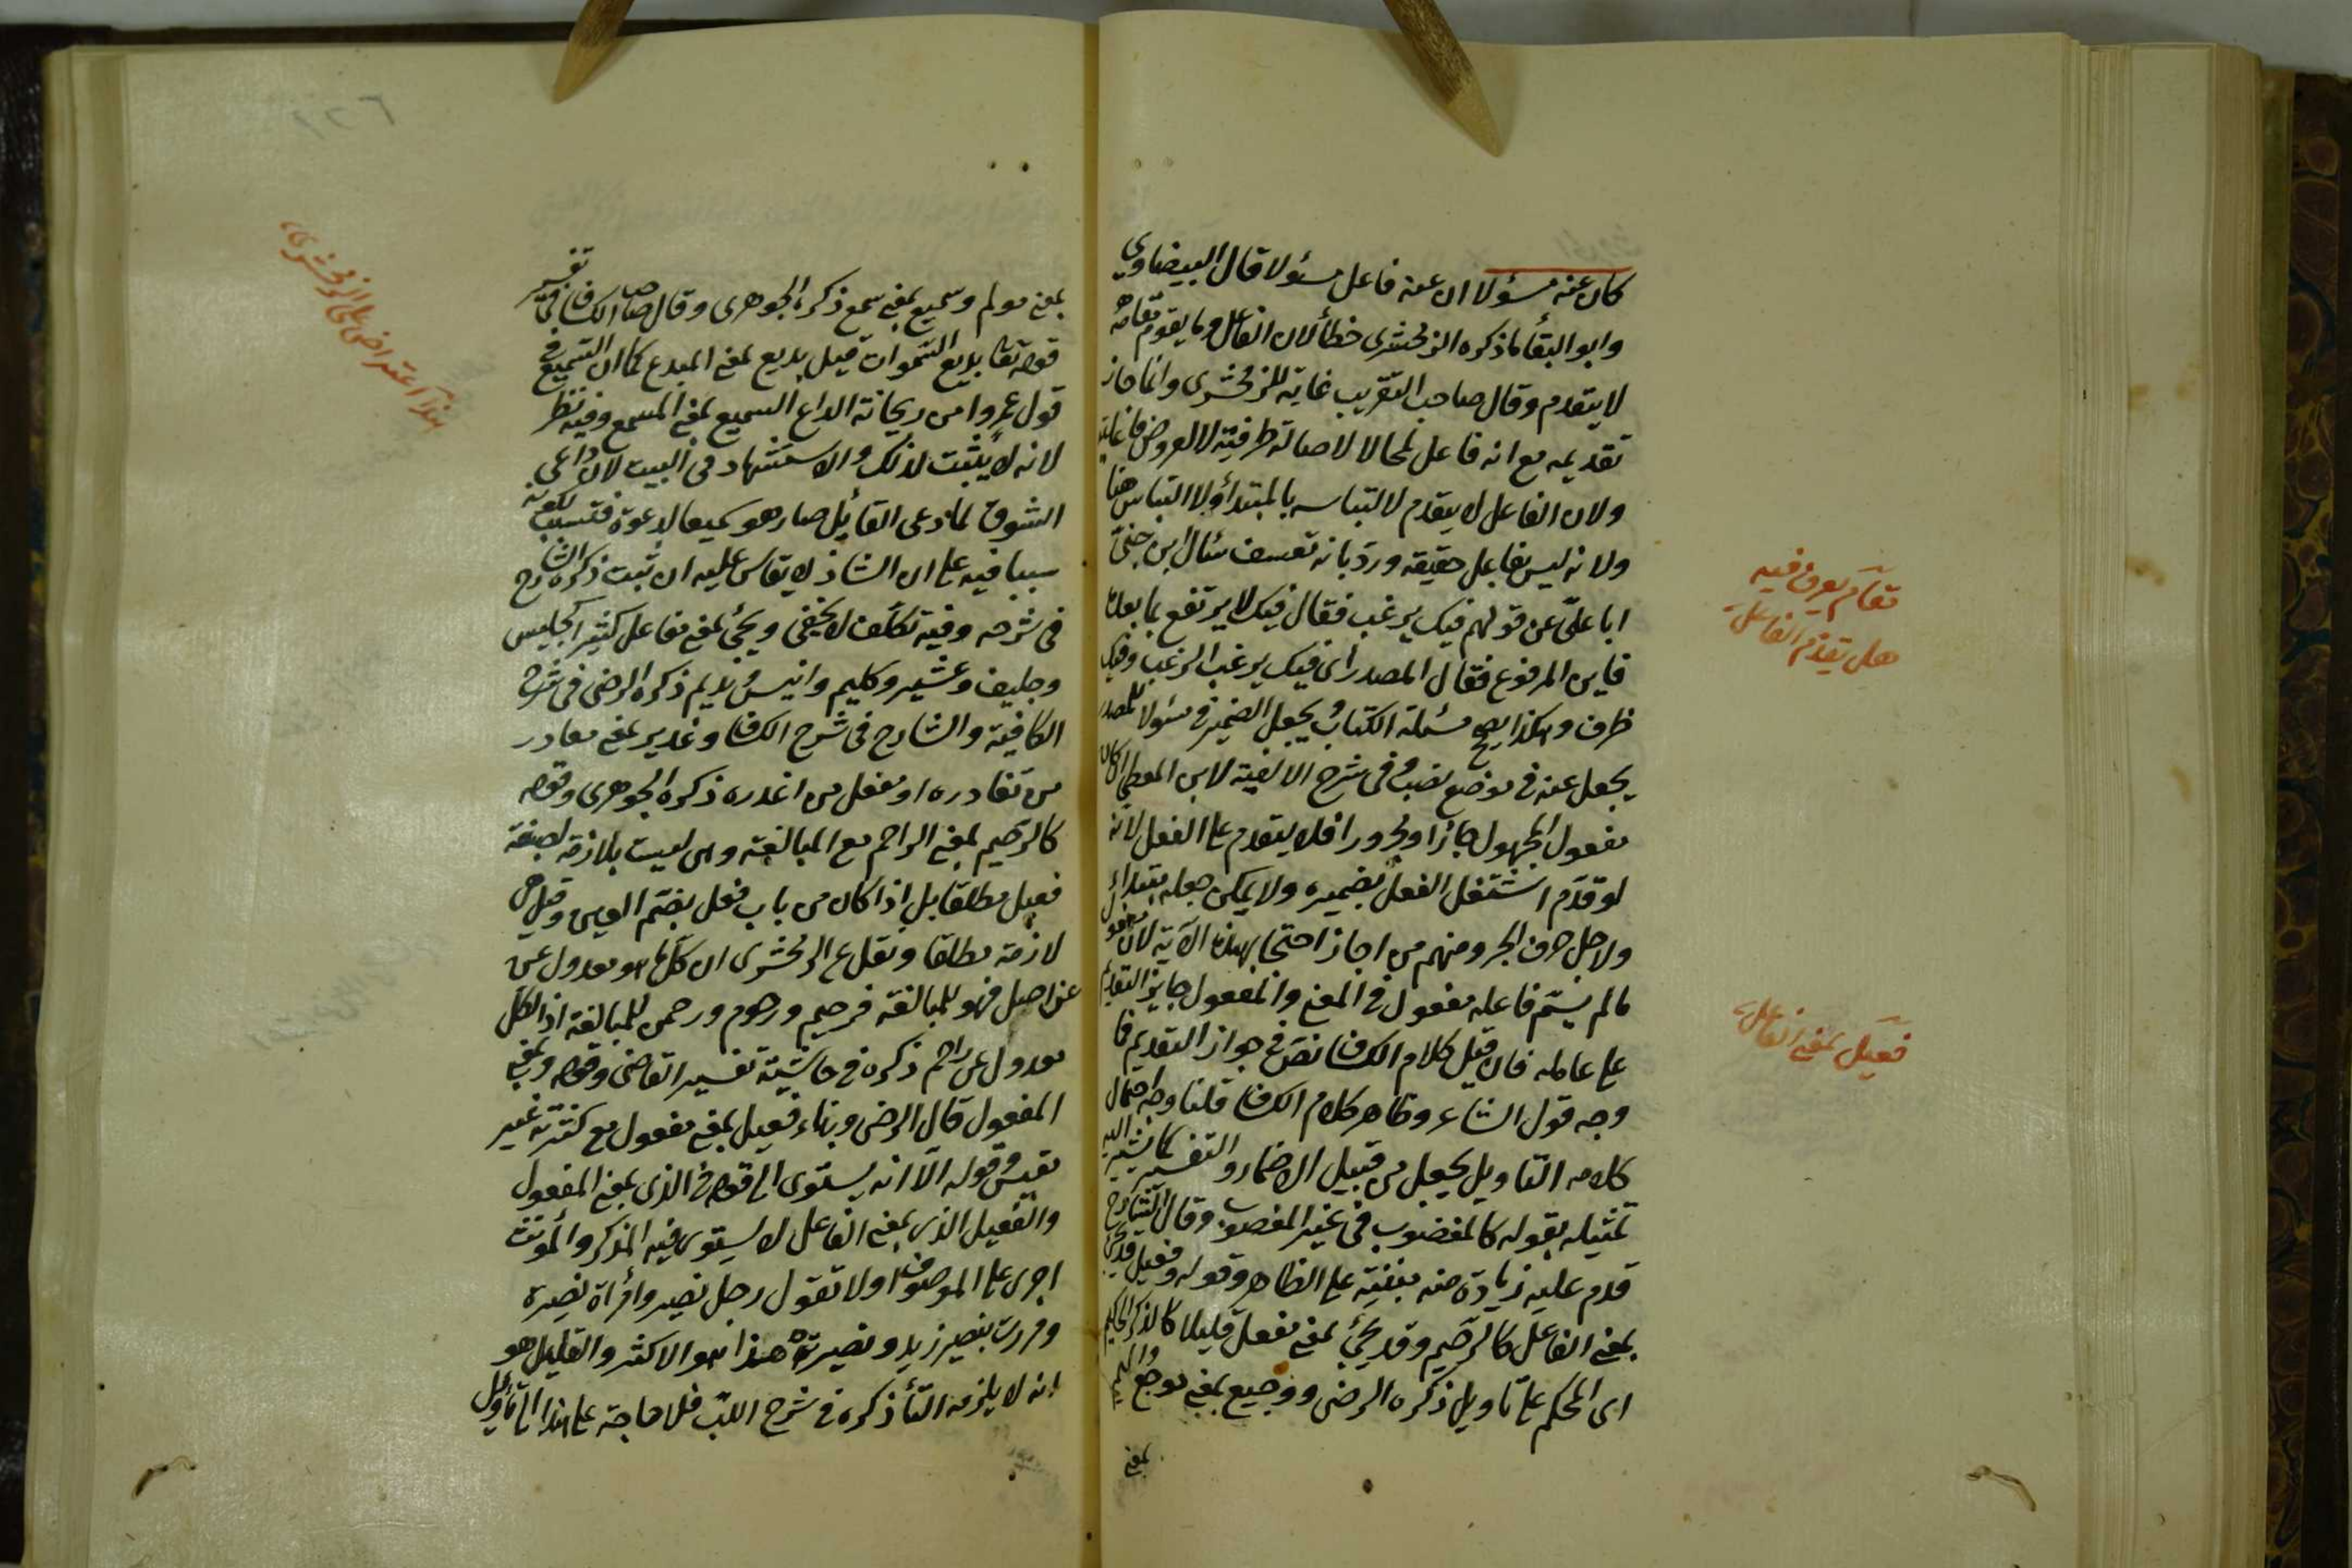 كان عنه مسؤلا ان عنه فاعل مسئولا قال البيضاوي
وابو البقأ ما ذكره الزمخشرى خطأ لان الفاعل وما يقوم مقامه
لا يتقدم وقال صاحب التقريب غاية للزمخشرى وانما جاز
تقديمه مع انه فاعل لمحالا لاصالة ظرفيته لا لعروض فاعليته
ولان الفاعل لا يتقدم لالتباسه بالمبتدأ ولا التباس هنا
ولانه ليس بفاعل حقيقة ورد بانه تعسف سئال ابن جنى
ابا على عن قولهم فيك يرغب فقال فيك لا يرتفع بما بعده
فاين المرفوع فقال المصدر اى فيك يرغب الرغب وفيك
ظرف وهكذا يصح مسئلة الكتاب يجعل الضمير فى مسئولا للمصدر
يجعل عنه فى موضع نصب وفى شرح الالفية لابن المعطى ان كان
مفعول المجهول جارا ومجرورا فلا يتقدم على الفعل لانه
لو قدم اشتغل الفعل بضميره ولا يمكن جعله مبتداء
ولاجل حرف الجر ومنهم من اجاز احتجا بهذه الآية لان مفعول
ما لم يسم فاعله مفعول فى المعنى والمفعول جايز التقديم
على عامله فان قيل كلام الكشاف نص فى جواز التقديم فما
وجه قول الشاعر وظاهر كلام الكشاف قلنا وجه احتمال
كلامه التأويل يجعل من قبيل الاضمار والتفسير كما يشير اليه
تمثيله بقوله كالمغضوب فى غير المغضوب وقال الشارح
قدم عليه زيادة منه مبنية على الظاهر وقوله وفعيل قد يجئ
بمعنى الفاعل كالرحيم وقد يجئ بمعنى مفعل قليلا كالذكر الحكيم
اى المحكم على تاويل ذكره الرضى ووجيع بمعنى موجع واليم
بمعنى
مقام يعرف فيه
هل يتقدم الفاعل
فعيل بمعنى الفاعل
بمعنى مولم وسميع بمعنى سمع ذكره الجوهرى وقال صاحب الكشاف فى تفسير
قوله تعا بديع السموات قيل بديع بمعنى المبدع كما ان السميع فى
قول عمرو امن ريحانة الداع السميع بمعنى المسمع وفيه نظر
لانه لا يثبت لذلك والاستشهاد فى البيت لان داعى
الشوق لما دعى القائل صار هو سميعا لدعوة فنسب لكونه
سببا فيه على ان الشاذ لا يقاس عليه ان ثبت ذكره الشارح
فى شرحه وفيه تكلف لا يخفى ويجئ بمعنى مفاعل كثيرا كجليس
وحليف وعشير وكليم وانيس ونديم ذكره الرضى فى شرح
الكافية والشارح فى شرح الكشاف وغدير بمعنى مغادر
من تغادره او مفعل من اغدره ذكره الجوهرى وقوله
كالرحيم بمعنى الراحم مع المبالغة وهى ليست بلازمة لصيغة
فعيل مطلقا بل اذا كان من باب فعل بضم العين وقيل هى
لازمة مطلقا ونقل عن الزمخشرى ان كلما هو معدول عن
عن اصل فهو للمبالغة فرحيم ورحوم ورحمن للمبالغة اذ الكل
معدول عن راحم ذكره فى حاشية تفسير القاضى وقوله وبمعنى
المفعول قال الرضى وبناء فعيل بمعنى مفعول مع كثرته غير
مقيس وقوله الا انه يستوى الى قوله فى الذى بمعنى المفعول
والفعيل الذى بمعنى الفاعل لا يستوى فيه المذكر والمونث
اجرى على الموصوف اولا تقول رجل نصير وامرأة نصيرة
ومررت بنصير زيد ونصيرته هذا هو الاكثر والقليل هو
انه لا يلزمه التأ ذكره فى شرح اللب فلا حاجة على هذا الى تأويل
هذا اعتراض على الزمخشرى